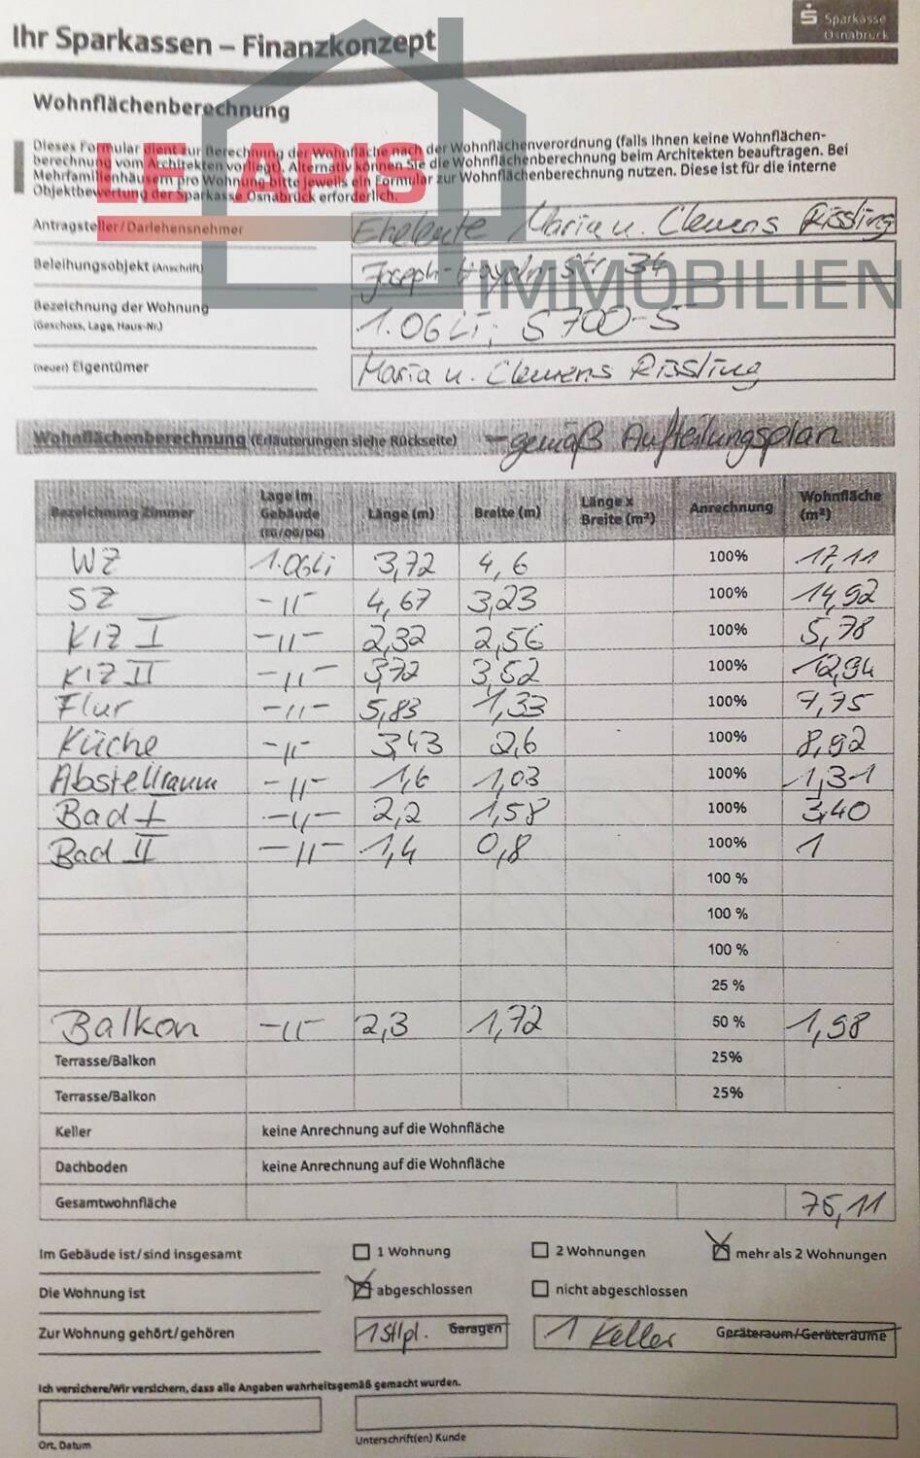 Ihr Sparkassen – Finanzkonzept
Sparkasse
Osnabrück
Wohnflächenberechnung
Dieses Formular dient zur Berechnung der Wohnfläche nach der Wohnflächenverordnung (falls Ihnen keine Wohnflächen-
berechnung vom Architekten vorliegt). Alternativ können Sie die Wohnflächenberechnung beim Architekten beauftragen. Bei
Mehrfamilienhäusern pro Wohnung bitte jeweils ein Formular zur Wohnflächenberechnung nutzen. Diese ist für die interne
Objektbewertung der Sparkasse Osnabrück erforderlich.
IMMOBILIEN
Antragsteller/Darlehensnehmer Eheleute Maria u. Clemens Rissling
Beleihungsobjekt (Anschrift) Joseph-Haydn-Str. 34
Bezeichnung der Wohnung 1.OG Li, S700-5
(Geschoss, Lage, Haus-Nr.)
(neuer) Eigentümer Maria u. Clemens Rissling
Wohnflächenberechnung (Erläuterungen siehe Rückseite) - gemäß Aufteilungsplan
Bezeichnung Zimmer Lage im Gebäude (EG/OG/DG) Länge (m) Breite (m) Länge x Breite (m²) Anrechnung Wohnfläche (m²)
WZ 1.OG Li 3,72 4,6 100% 17,11
SZ -"- 4,67 3,23 100% 14,92
KIZ I -"- 2,32 2,56 100% 5,78
KIZ II -"- 3,72 3,52 100% 12,94
Flur -"- 5,83 1,33 100% 7,75
Küche -"- 3,43 2,6 100% 8,92
Abstellraum -"- 1,6 1,03 100% 1,31
Bad I -"- 2,2 1,58 100% 3,40
Bad II -"- 1,4 0,8 100% 1
100 %
100 %
100 %
25 %
Balkon -"- 2,3 1,72 50 % 1,98
Terrasse/Balkon 25%
Terrasse/Balkon 25%
Keller keine Anrechnung auf die Wohnfläche
Dachboden keine Anrechnung auf die Wohnfläche
Gesamtwohnfläche 75,11
Im Gebäude ist/sind insgesamt 1 Wohnung 2 Wohnungen mehr als 2 Wohnungen
Die Wohnung ist abgeschlossen nicht abgeschlossen
Zur Wohnung gehört/gehören 1 Stlpl. Garagen 1 Keller Geräteraum/Geräteräume
Ich versichere/Wir versichern, dass alle Angaben wahrheitsgemäß gemacht wurden.
Ort, Datum Unterschrift(en) Kunde